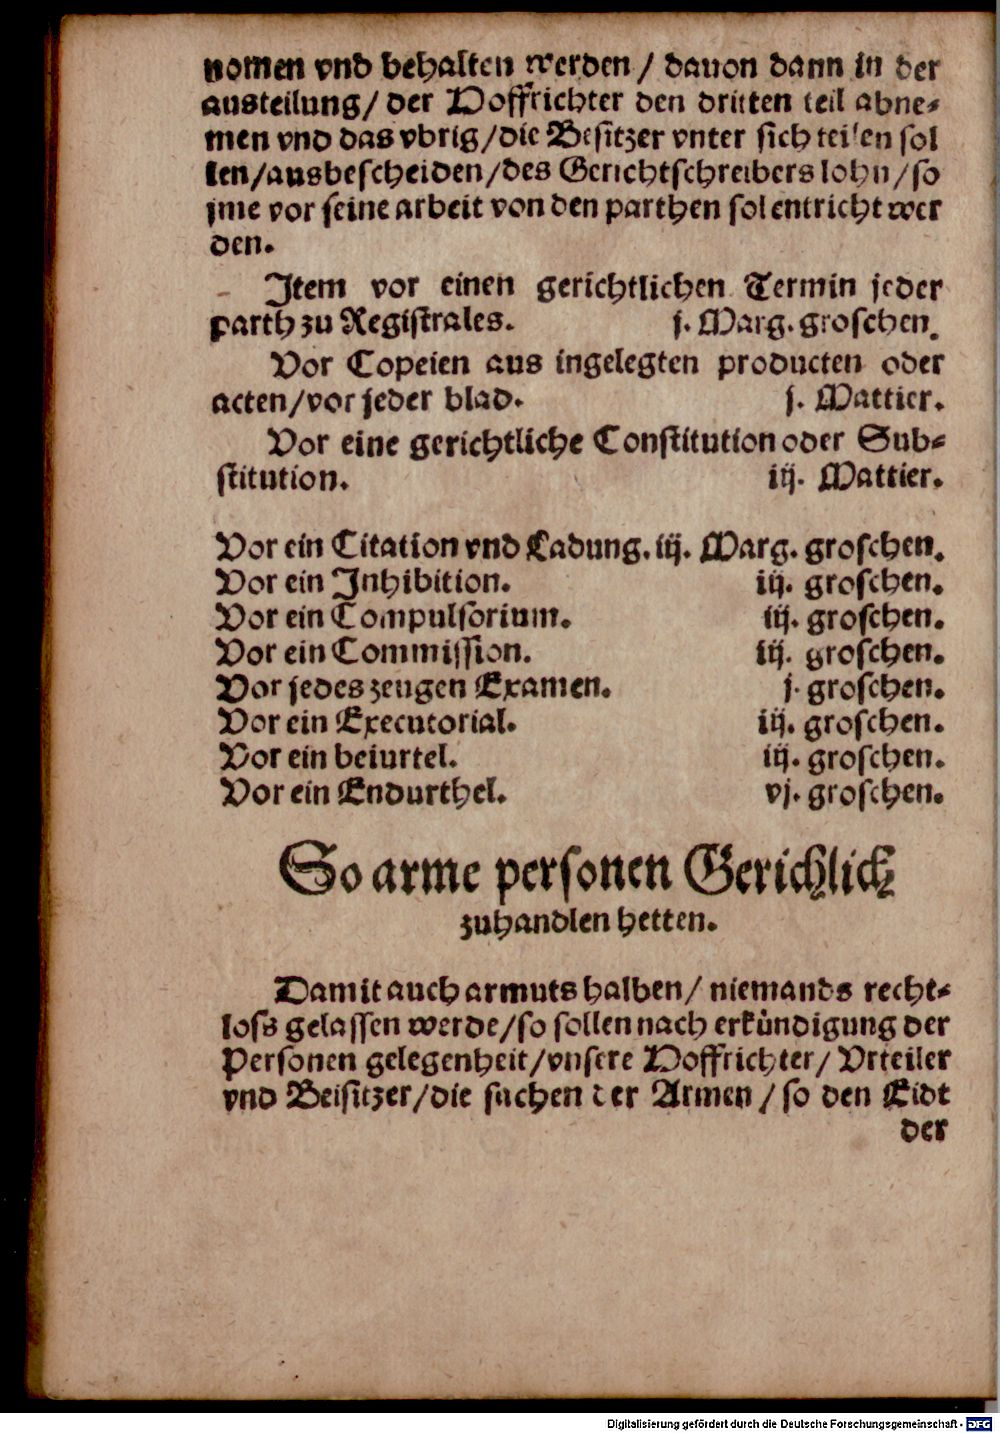 nomen vnd behalten werden / dauon dann in der
austeilung / der Hoffrichter den dritten teil abne-
men vnd das vbrig / die Besitzer vnter sich teilen sol
len / ausbescheiden / des Gerichtschreibers lohn / so
jme vor seine arbeit von den parthen sol entricht wer
den.
Item vor einen gerichtlichen Termin jeder
parth zu Registrales. j. Marg. groschen.
Vor Copeien aus ingelegten producten oder
acten / vor jeder blad. j. Mattier.
Vor eine gerichtliche Constitution oder Sub-
stitution. iij. Mattier.
Vor ein Citation vnd Ladung. iij. Marg. groschen.
Vor ein Inhibition. iij. groschen.
Vor ein Compulsorium. iij. groschen.
Vor ein Commission. iij. groschen.
Vor jedes zeugen Examen. j. groschen.
Vor ein Executorial. iij. groschen.
Vor ein beiurtel. iij. groschen.
Vor ein Endurthel. vj. groschen.
So arme personen Gerichlick
zuhandlen hetten.
Damit auch armuts halben / niemands recht-
loss gelassen werde / so sollen nach erkündigung der
Personen gelegenheit / vnsere Hoffrichter / Vrteiler
vnd Beisitzer / die sachen der Armen / so den Eidt
der
Digitalisierung gefördert durch die Deutsche Forschungsgemeinschaft - DFG